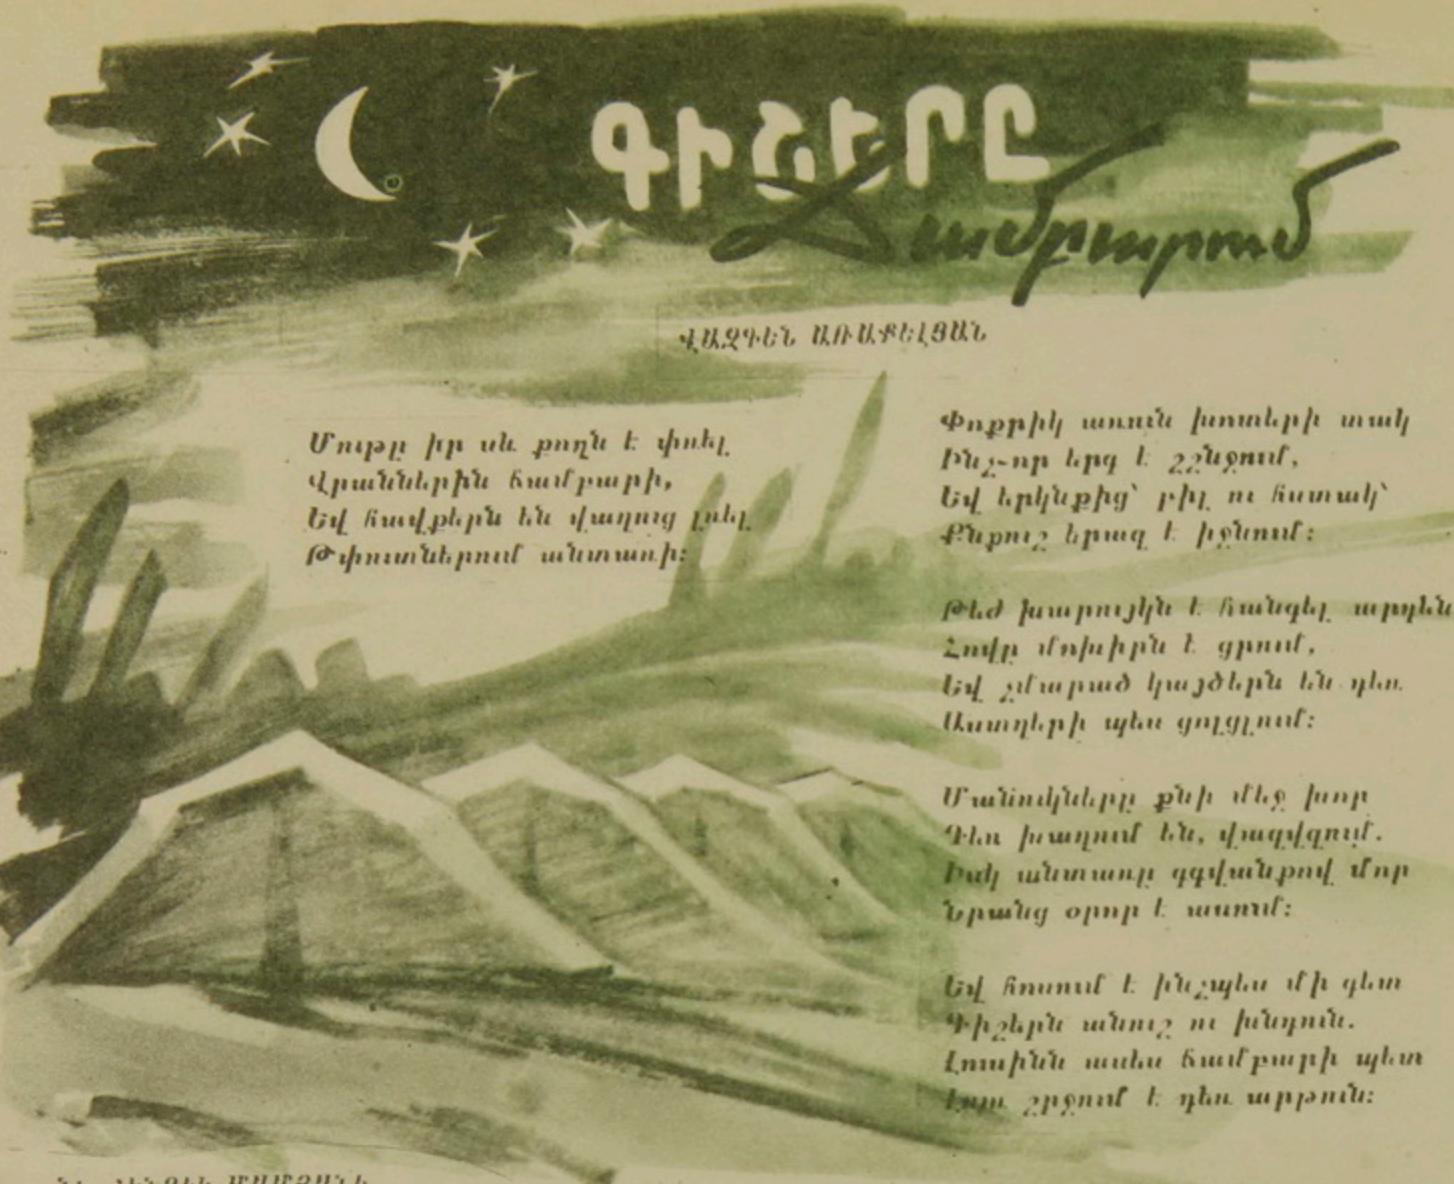 ԳԻՇԵՐԸ
Ճամբարում
ՎԱԶԳԵՆ ԱՌԱՔԵԼՅԱՆ
Մութը իր սև քողն է փռել
Վրաններին ճամբարի,
Եվ հավքերն են վաղուց լռել
Թփուտներում անտառի։
Փոքրիկ առուն խոտերի տակ
Ինչ-որ երգ է շշնջում,
Եվ երկնքից՝ բիլ ու հստակ՝
Քնքուշ երազ է իջնում։
Թեժ խարույկն է հանգել արդեն
Հովը մոխիրն է ցրում,
Եվ չմարած կայծերն են դեռ
Աստղերի պես ցոլցլում։
Մանուկները քնի մեջ խոր
Դեռ խաղում են, վազվզում.
Իսկ անտառը գգվանքով մոր
Նրանց օրոր է ասում։
Եվ հոսում է ինչպես մի գետ
Գիշերն անուշ ու խնդուն.
Լուսինն ասես ճամբարի պետ
շրջում է դեռ արթուն։